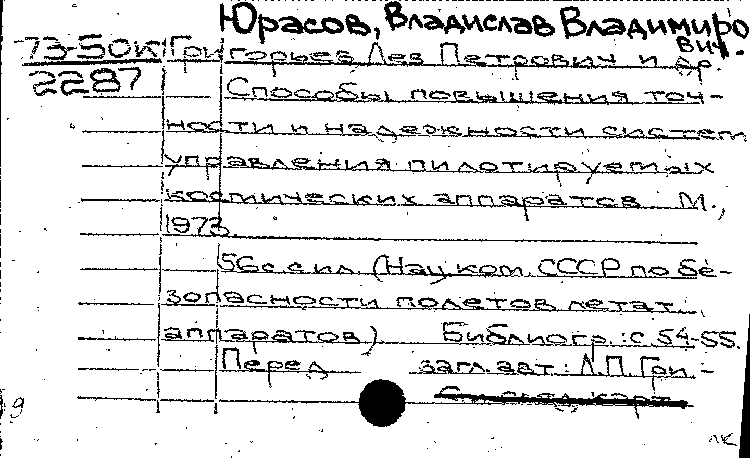 Юрасов, Владислав Владимиро
вич.
73-50к Григорьев Лев Петрович и др.
2287
Способы повышения точ-
ности и надежности систем
управления пилотируемых
космических аппаратов. М.,
1973.
56с. с ил. (Нац. ком. СССР по бе-
зопасности полетов летат.
аппаратов). Библиогр.: с. 54-55.
Перед загл. авт.: Л.П. Гри-
9